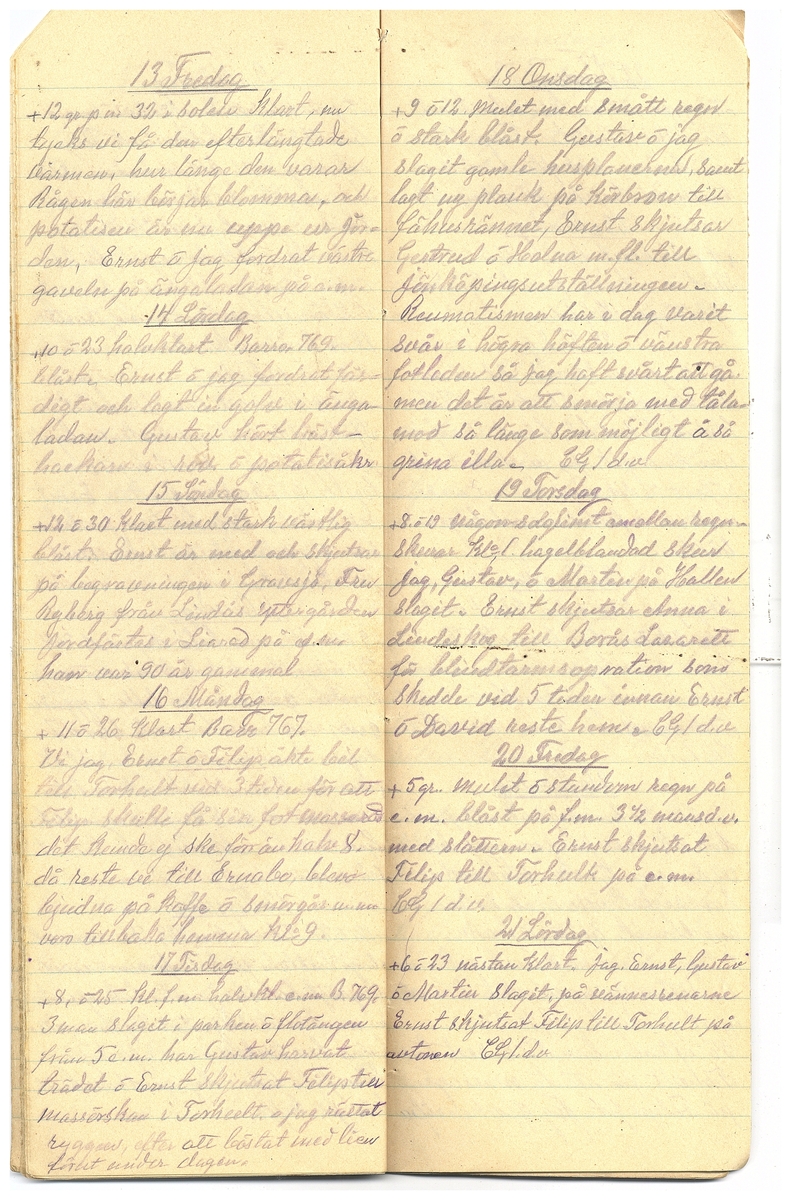 13 Fredag
+12 gr. på m 32 i solen Klart, nu
tycks vi få den efterlängtade
värmen, hur länge den varar
Rågen här börjar blomma, och
potatisen är nu uppe ur jor-
den, Ernst ö jag fordrat västra
gaveln på ängaladan på e.m.
14 Lördag
+10 ö 23 halvklart. Barro 769.
blåst. Ernst ö jag fordrat fär-
digt och lagt in golv i änga-
ladan. Gustav kört häst-
hackan i ö potatisåkr
15 Söndag
+12 ö 30 Klart med stark västlig
blåst. Ernst är med och skjutsar
på begravningen i Gravsjö, Fru
Ryberg från Lindås yttergården
jordfästes i Liared på e.m.
han var 90 år gammal
16 Måndag
+ 11 ö 26 Klart Barr 767.
Vi jag, Ernst ö Filip åkte bil
till Torhult vid 3 tiden för att
Filip skulle få sin fot masserad
det kunde ej ske förrän halv 8.
då reste vi till Ernabo, blevo
bjudna på kaffe ö smörgås m.m
voro tillbaka hemma Kl. 9.
17 Tisdag
+8, ö 25 kl. f.m. halvkl. e.m. B. 769.
3 man slaget i parken ö flotängen
från 5 e.m. har Gustav harvat
trädet ö Ernst skjutsat Filip till
massörskan i Torhult. ö jag rättat
ryggen, efter att böstat med lien
förut under dagen.
18 Onsdag
+9 ö 12 Mulet med smått regn
ö stark blåst. Gustav ö jag
slagit gamle husplanerna, samt
lagt ny plank på körbron till
fähusrännet, Ernst skjutsar
Gertrud ö Hedna m.fl. till
jönköpingsutställningen.
Reumatismen har i dag varit
svår i högra höften ö vänstra
fotleden så jag haft svårt att gå.
men det är att smörja med tåla-
mod så länge som möjligt å så
grina illa. EG 1 d.v
19 Torsdag
+8. ö 19 någon solglimt emellan regn-
skurar Kl. 1. hagelblandad skur
jag, Gustav, ö Martin på Hallen
slagit. Ernst skjutsar Anna i
Lindeskog till Borås Lasarett
för blindtarmsopration som
skedde vid 5 tiden innan Ernst
ö David reste hem. EG 1 d.v
20 Fredag
+ 5 gr. mulet ö stundom regn på
e.m. blåst på f.m. 3 1/2 mansd.v.
med slåttern. Ernst skjutsat
Filip till Torhult på e.m.
EG 1 d.v.
21 Lördag
+6 ö 23 nästan klart. jag. Ernst, Gustav
ö Martin slaget, på
Ernst skjutsat Filip till Torhult på
avtonen EG 1.d.v